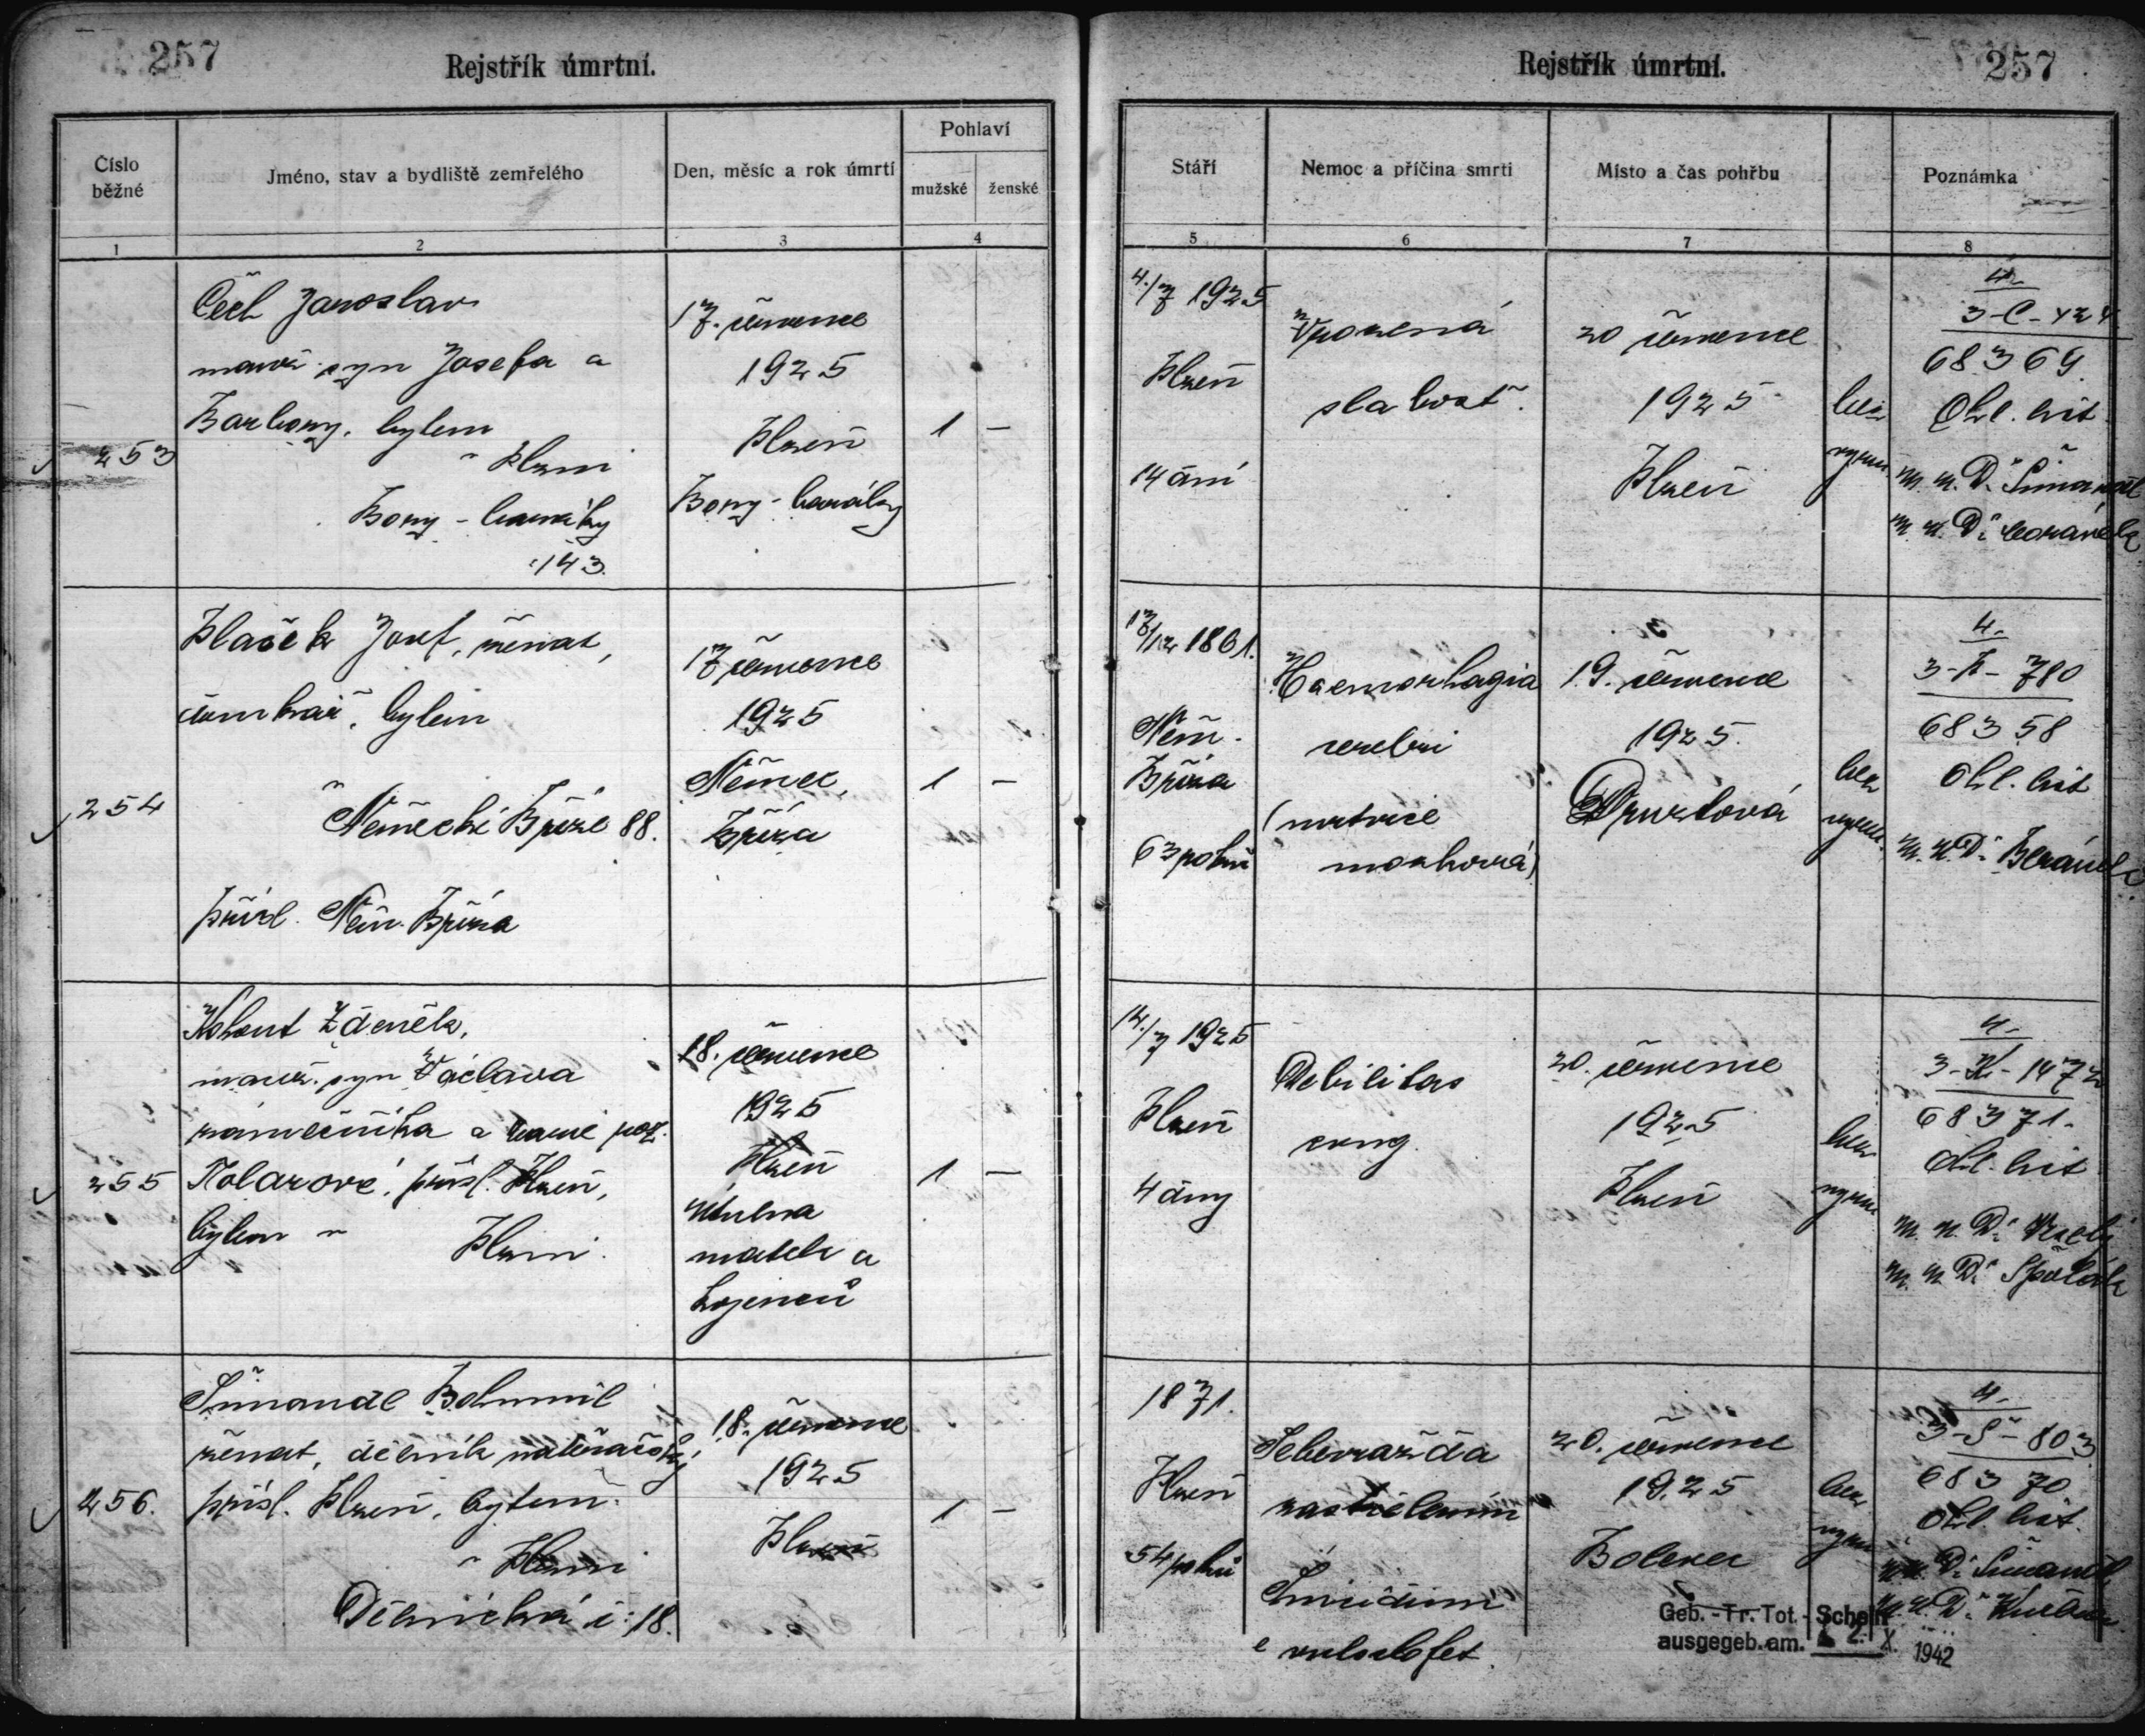 257
Rejstřík úmrtní.
Číslo běžné
Jméno, stav a bydliště zemřelého
Den, měsíc a rok úmrtí
Pohlaví
mužské
ženské
1
2
3
4
253
Čech Jaroslav
manž. syn Josefa a
Barbory, bytem
v Plzni
Bory - baráky
143.
17. července
1925
Plzeň
Bory - baráky
1
—
254
Plaček Josef, ženat,
bytem
v Německé Bříze 88.
přísl. Něm. Bříza
17 července
1925
Německ.
Bříza
1
—
255
Kohout Zdeněk,
manž. syn Václava
zámečníka a
přísl. Plzeň,
bytem v Plzni.
18. července
1925
Plzeň
útulna
matek a
kojenců
1
—
256.
Šimandl Bohumil
ženat, dělník
přísl. Plzeň, bytem
v Plzni
Dělnická č: 18.
18. července
1925
Plzeň
1
—
Rejstřík úmrtní.
257
Stáří
Nemoc a příčina smrti
Místo a čas pohřbu
Poznámka
5
6
7
8
4./7 1925
Plzeň
14 dní
Vrozená
slabost.
20 července
1925
Plzeň
bez
vyzn.
4.
3-C-424
68369.
Ohl. list.
M. U. Dr. Šimandl
M. U. Dr.
13/12 1861.
Něm.
Bříza
63 roků
Haemorhagia
cerebri
(mrtvice
mozková)
19. července
1925.
Druztová
bez
vyzn.
4.
3-P-780
68358
Ohl. list
M. U. Dr. Beránek
14./7 1925
Plzeň
4 dny
Debilitas
cong.
20. července
1925
Plzeň
bez
vyzn.
4.
3-K-1472
68371.
Ohl. list
M. U. Dr. Veselý
M. U. Dr.
1871.
Plzeň
54 roků
Sebevražda
zastřelením
Suicidium
e vulo sclofet.
20. července
1925
Bolevec
bez
vyzn.
4.
3-Š-803
68370
Ohl. list.
M. U. Dr. Šimandl
M. U. Dr.
Geb.-Tr. Tot.-Schein
ausgegeb. am. 2. X. 1942